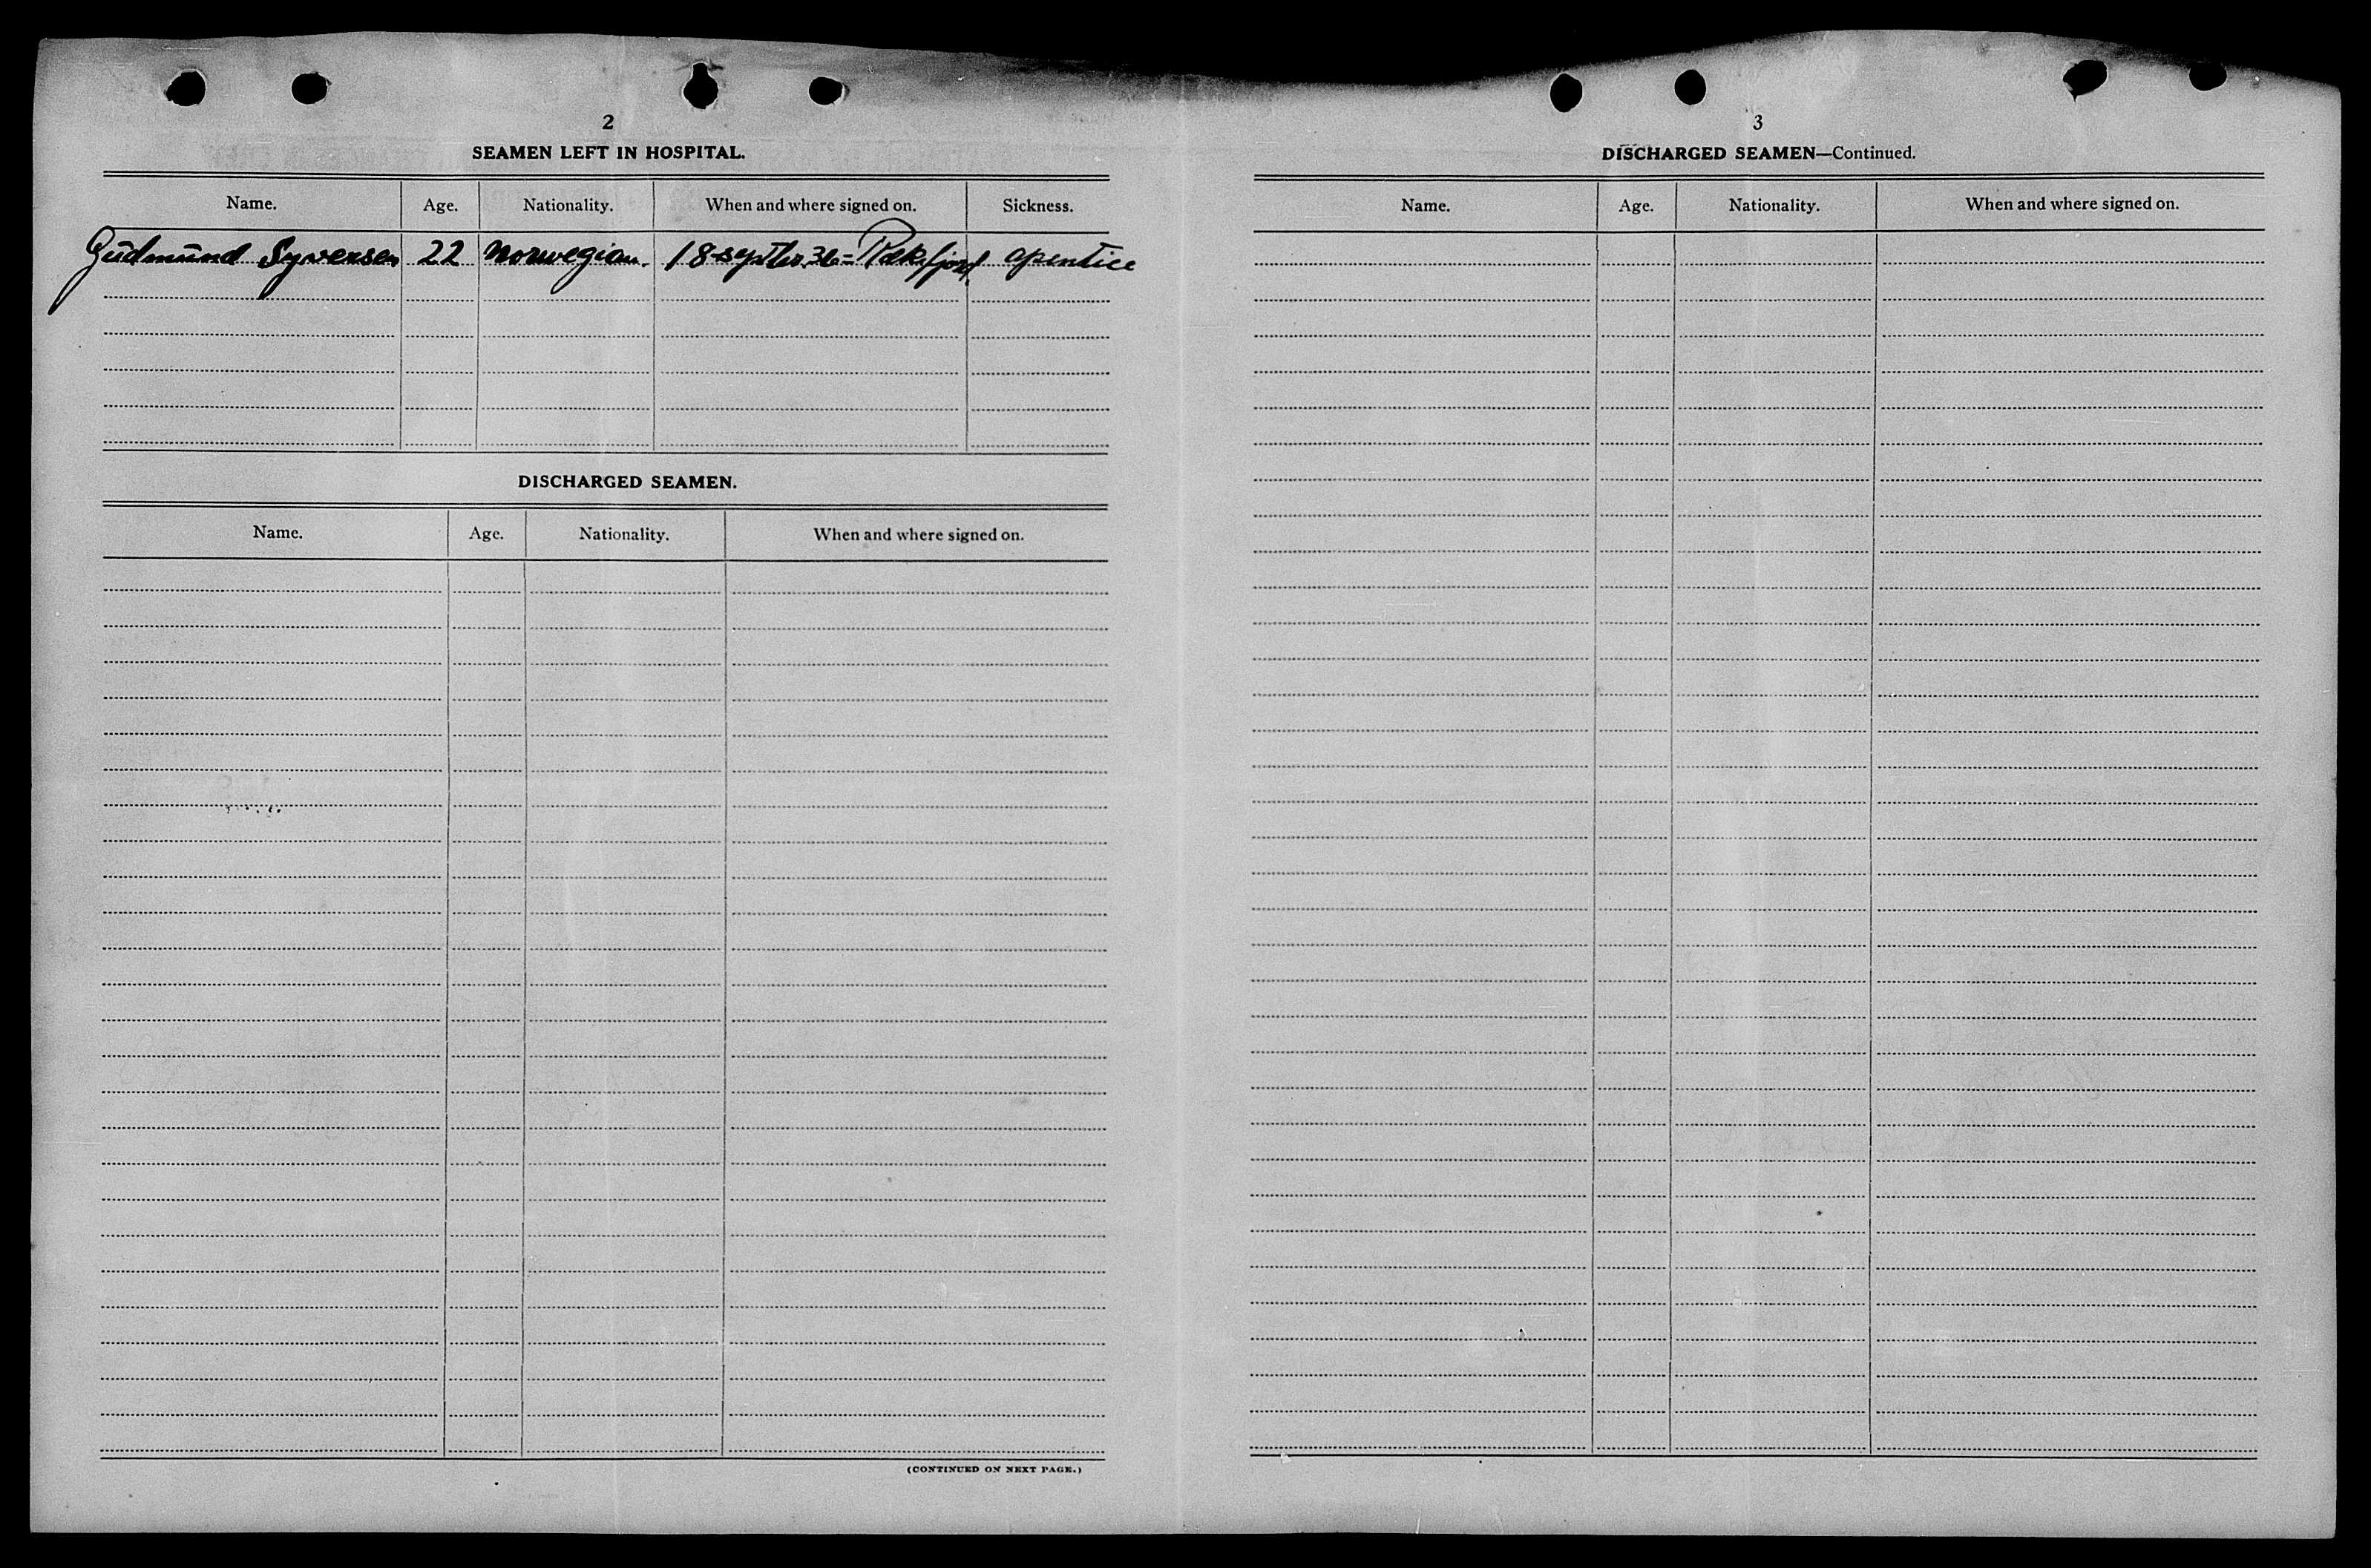 2
SEAMEN LEFT IN HOSPITAL.
Name. Age. Nationality. When and where signed on. Sickness.
Gudmund Syversen 22 Norwegian. 18 septbr. 36 = Rekefjord. apentice
DISCHARGED SEAMEN.
Name. Age. Nationality. When and where signed on.
(CONTINUED ON NEXT PAGE.)
3
DISCHARGED SEAMEN—Continued.
Name. Age. Nationality. When and where signed on.